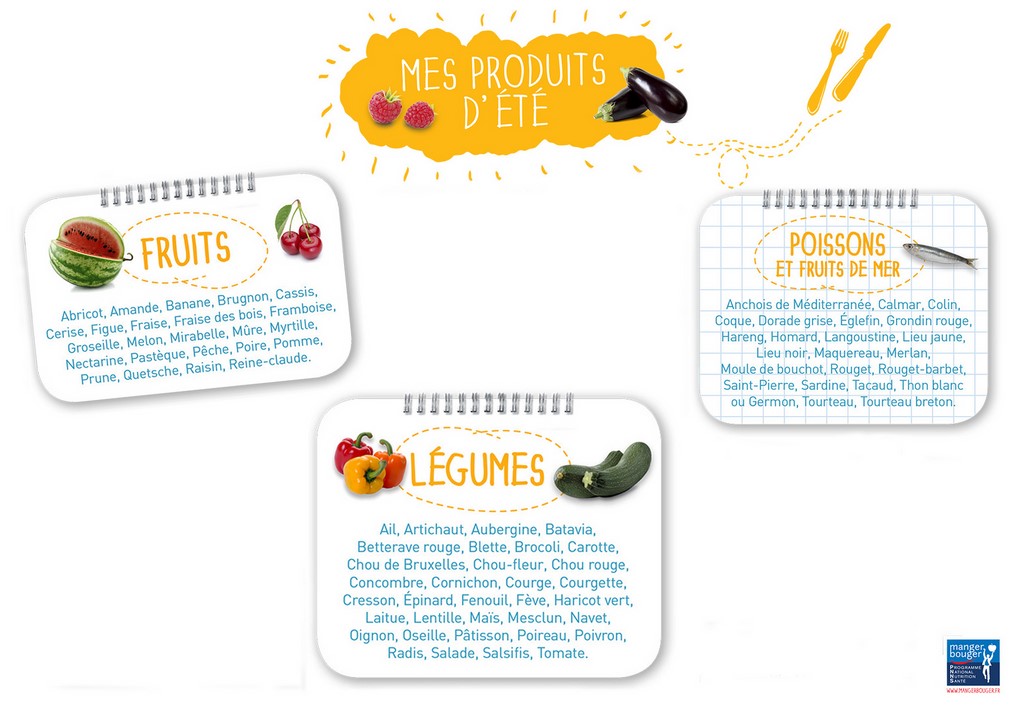 MES PRODUITS
D'ÉTÉ
FRUITS
Abricot, Amande, Banane, Brugnon, Cassis,
Cerise, Figue, Fraise, Fraise des bois, Framboise,
Groseille, Melon, Mirabelle, Mûre, Myrtille,
Nectarine, Pastèque, Pêche, Poire, Pomme,
Prune, Quetsche, Raisin, Reine-claude.
POISSONS
ET FRUITS DE MER
Anchois de Méditerranée, Calmar, Colin,
Coque, Dorade grise, Églefin, Grondin rouge,
Hareng, Homard, Langoustine, Lieu jaune,
Lieu noir, Maquereau, Merlan,
Moule de bouchot, Rouget, Rouget-barbet,
Saint-Pierre, Sardine, Tacaud, Thon blanc
ou Germon, Tourteau, Tourteau breton.
LÉGUMES
Ail, Artichaut, Aubergine, Batavia,
Betterave rouge, Blette, Brocoli, Carotte,
Chou de Bruxelles, Chou-fleur, Chou rouge,
Concombre, Cornichon, Courge, Courgette,
Cresson, Épinard, Fenouil, Fève, Haricot vert,
Laitue, Lentille, Maïs, Mesclun, Navet,
Oignon, Oseille, Pâtisson, Poireau, Poivron,
Radis, Salade, Salsifis, Tomate.
manger
bouger
PROGRAMME
NATIONAL
NUTRITION
SANTÉ
WWW.MANGERBOUGER.FR